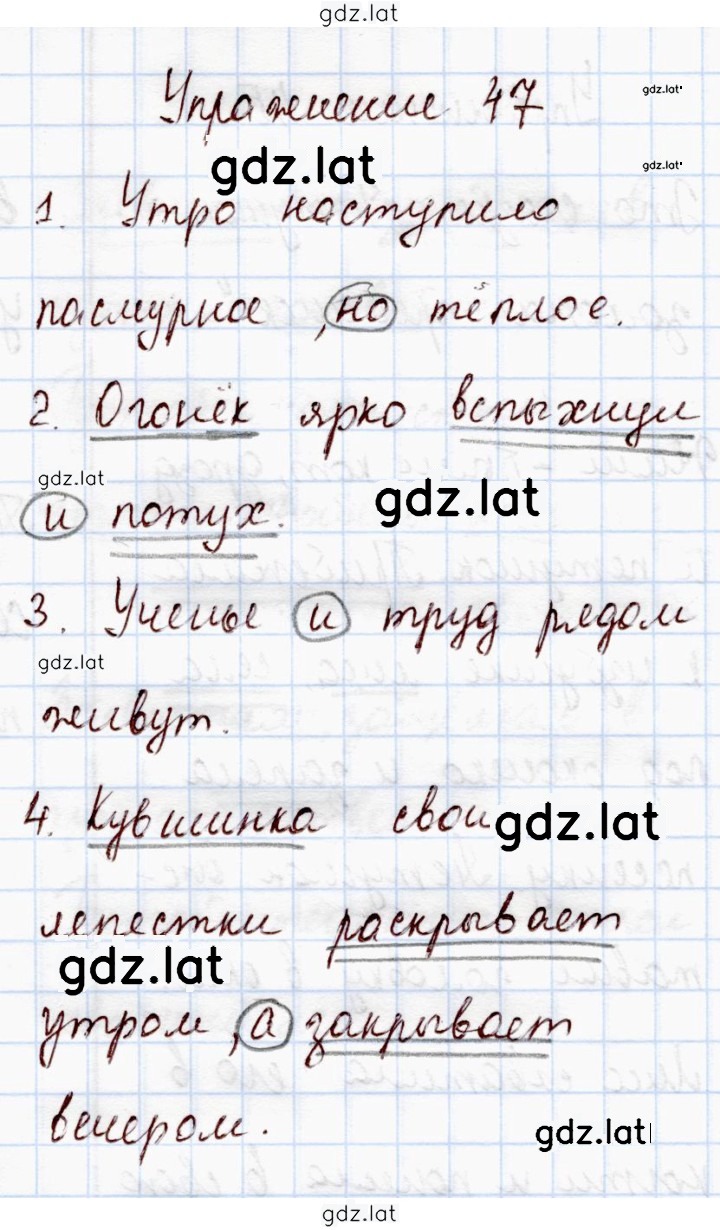 gdz.lat
Упражнение 47
gdz.lat
gdz.lat
gdz.lat
1. Утро наступило
пасмурное, но тёплое.
2. Огонёк ярко вспыхнул
gdz.lat
gdz.lat
и потух.
3. Ученье и труд рядом
gdz.lat
живут.
4. Кувшинка свои
gdz.lat
лепестки раскрывает
gdz.lat
утром, а закрывает
вечером.
gdz.lat
gdz.lat